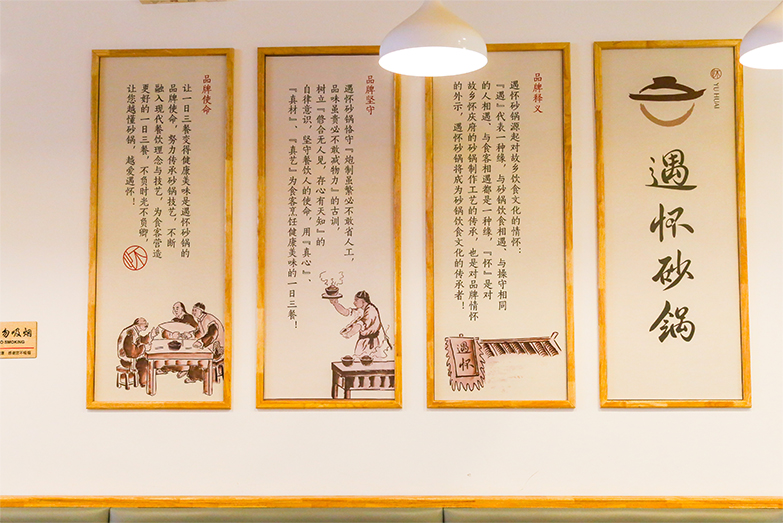 YU HUAI
遇怀砂锅
品牌释义
遇怀砂锅源起对故乡饮食文化的情怀:
『遇』代表一种缘,与砂锅饮食相遇、与操守相同
的人相遇、与食客相遇都是一种缘,『怀』是对
故乡怀庆府的砂锅制作工艺的传承,也是对品牌情怀
的外示,遇怀砂锅将成为砂锅饮食文化的传承者!
遇怀
品牌坚守
遇怀砂锅恪守『炮制虽繁必不敢省人工,
品味虽贵必不敢减物力』的古训,
树立『修合无人见,存心有天知』的
自律意识,坚守餐饮人的使命,用『真心』、
『真材』、『真艺』为食客烹饪健康美味的一日三餐!
品牌使命
让一日三餐变得健康美味是遇怀砂锅的
品牌使命,努力传承砂锅技艺,不断
融入现代餐饮理念与技艺,为食客营造
更好的一日三餐,不负时光不负卿,
让您越懂砂锅,越爱遇怀!
勿吸烟
O SMOKING